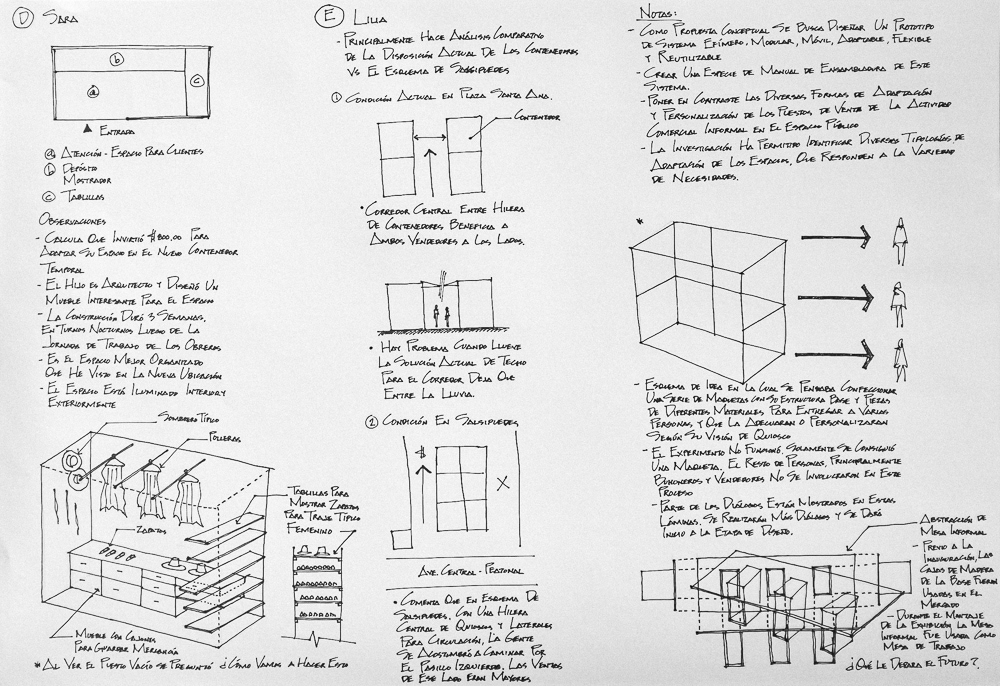 D Sara
b
a
c
Entrada
a Atención - Espacio Para Clientes
b Depósito
Mostrador
c Tablillas
Observaciones
- Calcula Que Invirtió $800.00 Para
Adaptar Su Espacio En El Nuevo Contenedor
Temporal
- El Hijo es Arquitecto y Diseñó Un
Mueble Interesante Para El Espacio
- La Construcción Duró 3 Semanas,
En Turnos Nocturnos Luego De La
Jornada De Trabajo De Los Obreros
- Es El Espacio Mejor Organizado
Que He Visto en La Nueva Ubicación
- El Espacio Está Iluminado Interior y
Exteriormente
Sombrero Típico
Polleras
Zapatos
Tablillas Para
Mostrar Zapatos
Para Traje Típico
Femenino
Mueble con Cajones
Para Guardar Mercancía
* Al Ver El Puesto Vacío se Preguntó ¿Cómo Vamos a Hacer Esto
E Lilia
- Principalmente Hace Análisis Comparativo
De La Disposición Actual De Los Contenedores
vs El Esquema de Salsipuedes
1 Condición Actual en Plaza Santa Ana.
Contenedor
• Corredor Central Entre Hilera
De Contenedores Beneficia a
Ambos Vendedores a Los Lados.
• Hay Problema Cuando Llueve
La Solución Actual De Techo
Para El Corredor Deja Que
Entre La Lluvia.
2 Condición En Salsipuedes
$
X
Ave. Central - Peatonal
• Comenta Que en Esquema De
Salsipuedes, Con Una Hilera
Central de Quioscos y Laterales
Para Circulación, La Gente
Se Acostumbró a Caminar Por
El Pasillo Izquierdo. Las Ventas
de Ese Lado Eran Mayores
Notas:
- Como Propuesta Conceptual Se Busca Diseñar Un Prototipo
de Sistema Efímero, Modular, Móvil, Adaptable, Flexible
y Reutilizable
- Crear Una Especie de Manual de Ensambladura de Este
Sistema.
- Poner en Contraste Las Diversas Formas de Adaptación
y Personalización de Los Puestos de Venta de La Actividad
Comercial Informal en El Espacio Público
- La Investigación Ha Permitido Identificar Diversas Tipologías de
Adaptación de Los Espacios, Que Responden a La Variedad
de Necesidades.
*
- Esquema de Idea en La Cual Se Pensaba Confeccionar
Una Serie de Maquetas con su Estructura Base y Piezas
de Diferentes Materiales Para Entregar a Varias
Personas, y Que La Adecuaran o Personalizaran
Según Su Visión de Quiosco
- El Experimento No Funcionó. Solamente Se Consiguió
Una Maqueta. El Resto de Personas, Principalmente
Buhoneros y Vendedores No Se Involucraron En Este
Proceso
- Parte de Los Diálogos Están Mostrados en Estas
Láminas. Se Realizarán Más Diálogos y Se Dará
Inicio a La Etapa de Diseño.
Abstracción de
Mesa Informal
- Previo a La
Inauguración, Las
Cajas de Madera
De La Base Fueron
Usadas en El
Mercado
- Durante el Montaje
De La Exhibición La Mesa
Informal Fue Usada Como
Mesa de Trabajo
¿Qué Le Depara El Futuro?